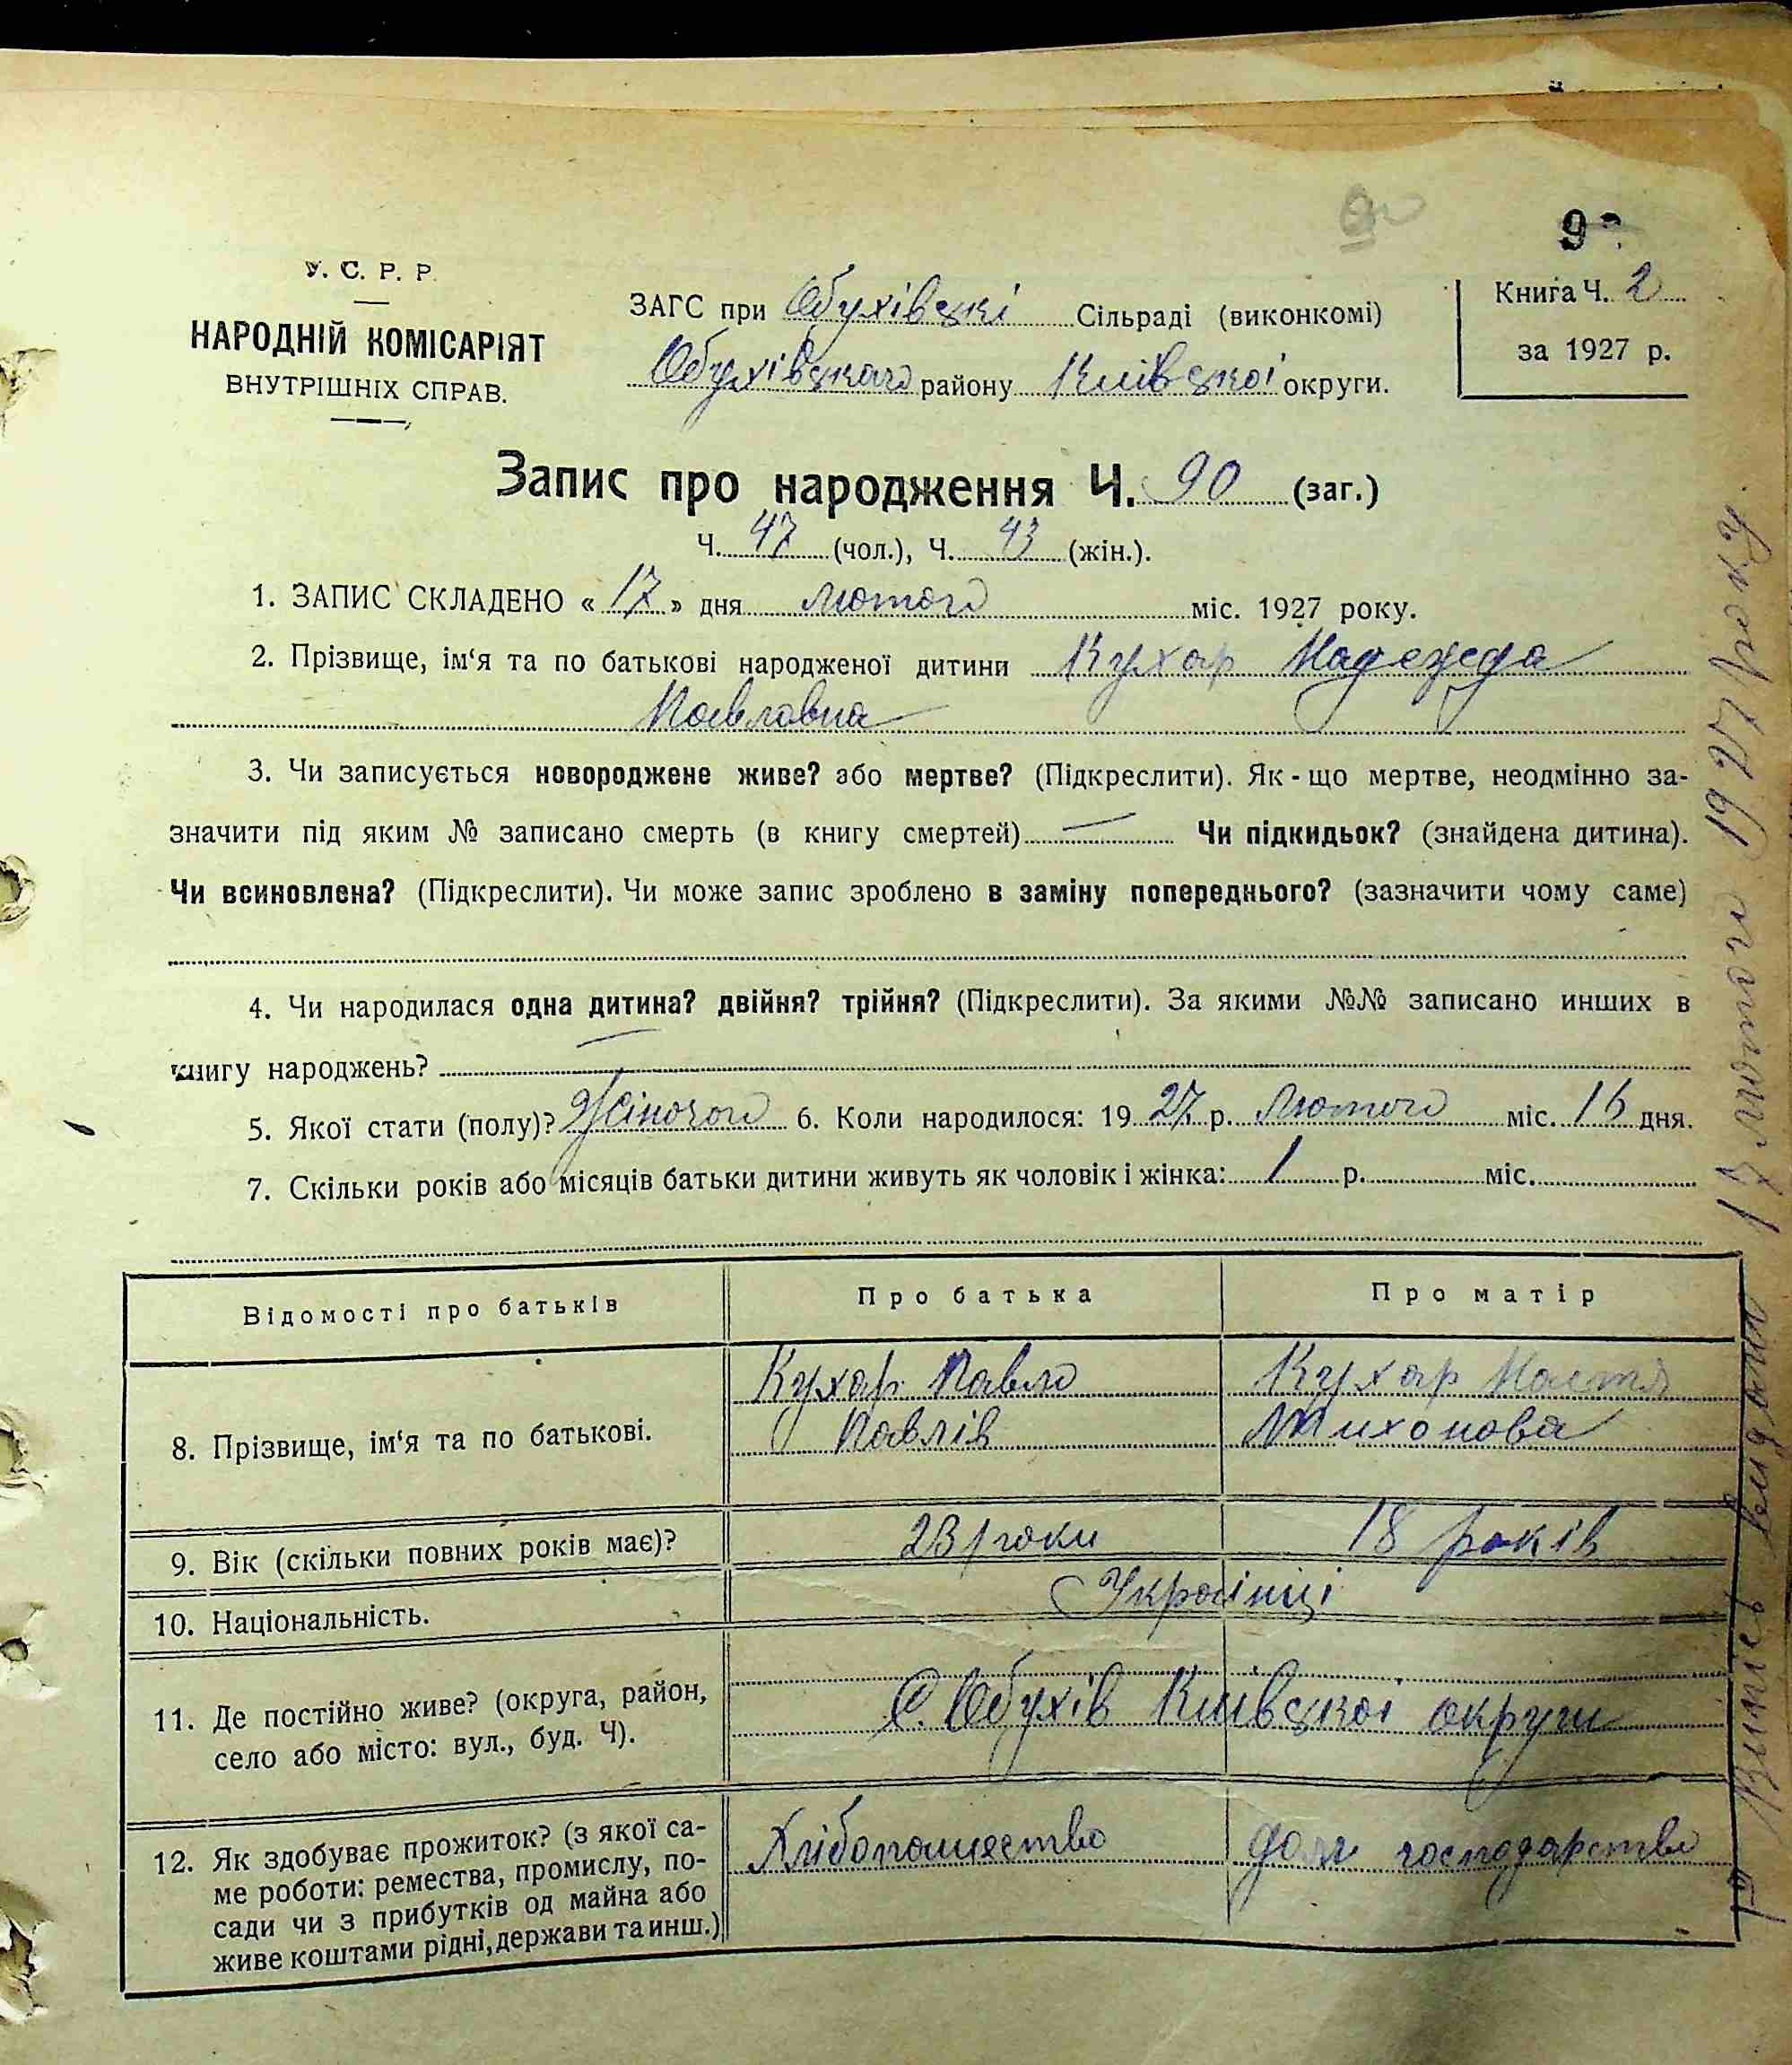 9
У. С. Р. Р.
НАРОДНІЙ КОМІСАРІЯТ
ВНУТРІШНІХ СПРАВ.
ЗАГС при Обухівскі Сільраді (виконкомі)
Обухівского району Київскої округи.
Книга Ч. 2
за 1927 р.
Запис про народження Ч. 90 (заг.)
Ч. 47 (чол.), Ч. 43 (жін.).
1. ЗАПИС СКЛАДЕНО «17» дня лютого міс. 1927 року.
2. Прізвище, ім‘я та по батькові народженої дитини Кухар Надежда
Павловна
3. Чи записується новороджене живе? або мертве? (Підкреслити). Як-що мертве, неодмінно за-
значити під яким № записано смерть (в книгу смертей) — Чи підкидьок? (знайдена дитина).
Чи всиновлена? (Підкреслити). Чи може запис зроблено в заміну попереднього? (зазначити чому саме)
4. Чи народилася одна дитина? двійня? трійня? (Підкреслити). За якими №№ записано инших в
книгу народжень? —
5. Якої стати (полу)? Жіночого 6. Коли народилося: 1927 р. Лютого міс. 16 дня.
7. Скільки років або місяців батьки дитини живуть як чоловік і жінка: 1 р. міс.
Відомості про батьків Про батька Про матір
8. Прізвище, ім‘я та по батькові.
Кухар Павло
Павлів
Кухар Настя
Тихонова
9. Вік (скільки повних років має)? 23 роки 18 років
10. Національність. Українці
11. Де постійно живе? (округа, район,
село або місто: вул., буд. Ч).
С. Обухів Київскої округи
12. Як здобуває прожиток? (з якої са-
ме роботи: ремества, промислу, по-
сади чи з прибутків од майна або
живе коштами рідні, держави та инш.)
Хлібопашество
дом господарство
Випис видано 17 лютого 1927 року